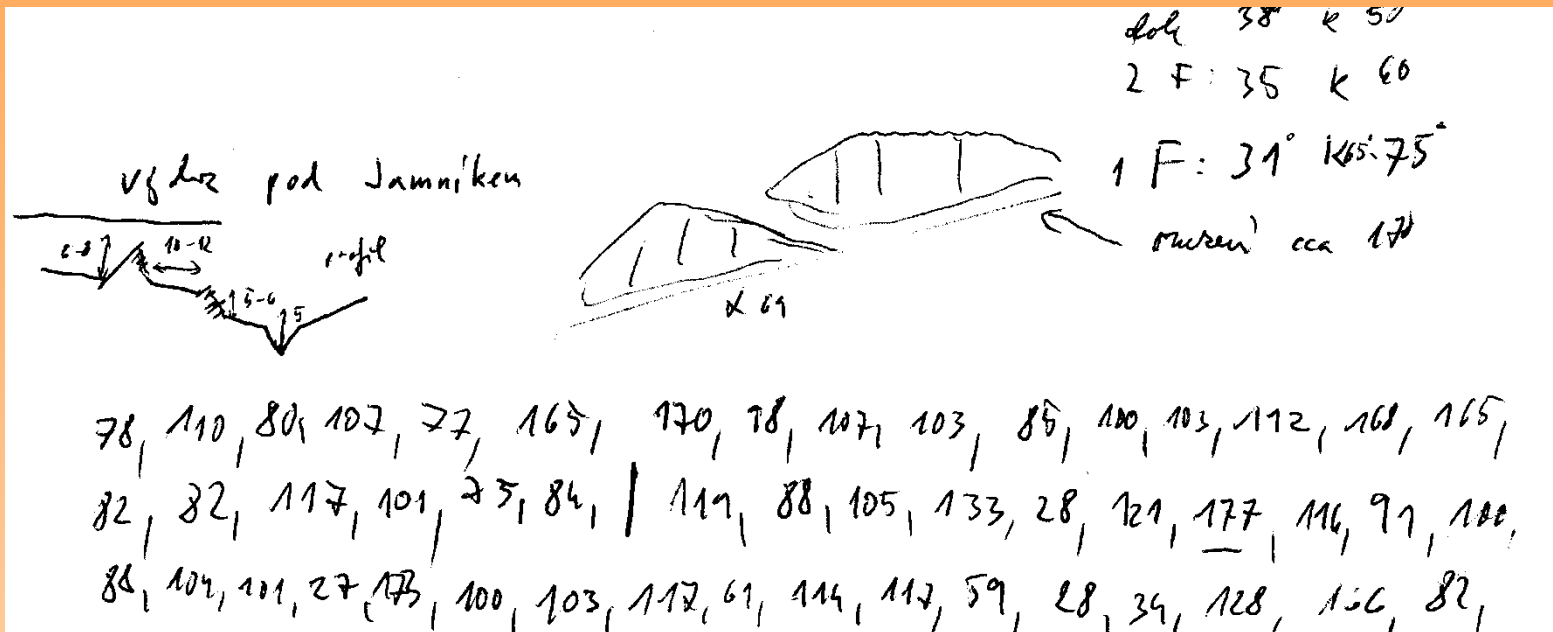 38° k 50
2 F: 35 k 60
1 F: 31° k65-75°
cca 17°
pod Jamníkem
6-8 10-12 profil
5-6 5
∠ 69
78, 110, 80, 107, 77, 165, 170, 98, 107, 103, 85, 100, 103, 112, 168, 165,
82, 82, 117, 101, 75, 84, | 119, 88, 105, 133, 28, 121, 177, 116, 91, 100,
88, 104, 101, 27, 173, 100, 103, 117, 61, 114, 117, 59, 28, 34, 128, 82,